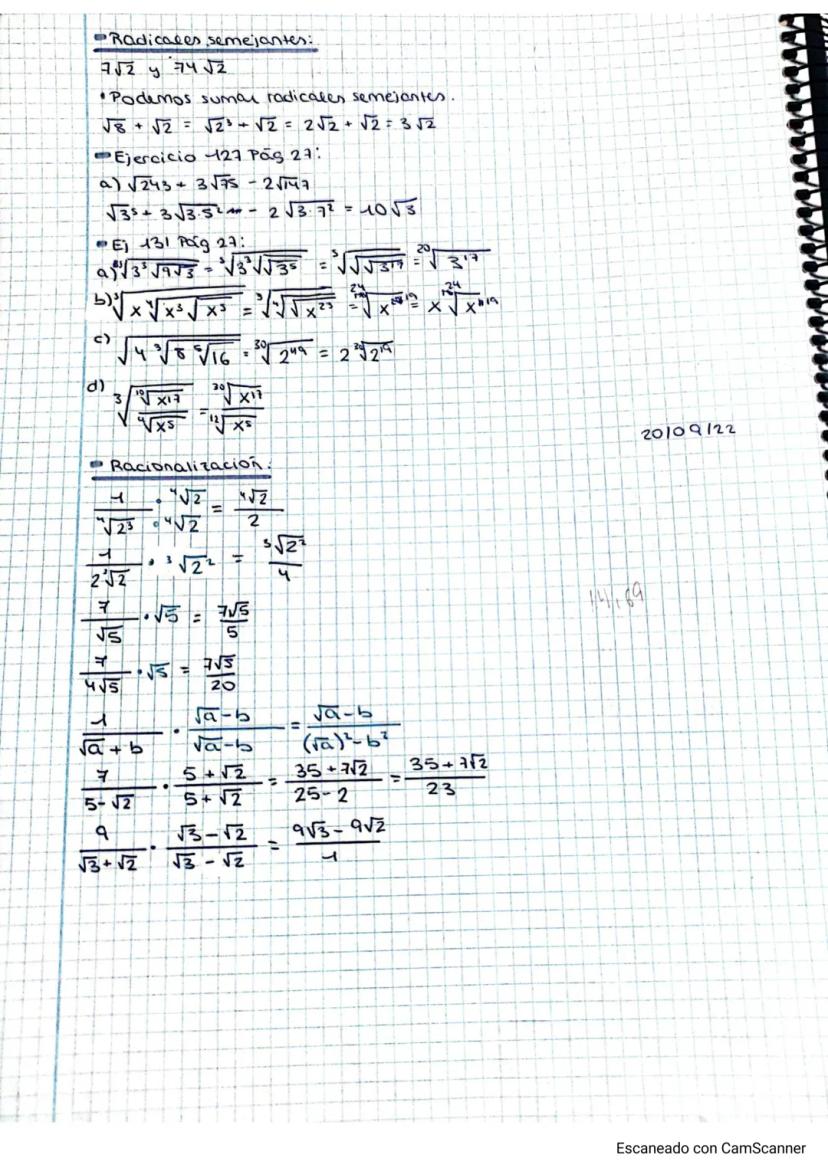 Radicales semejantes:
7√2 y 74√2
• Podemos sumar radicales semejantes.
√8 + √2 = √2³ + √2 = 2√2 + √2 = 3√2
Ejercicio 127 Pág 27:
a) √243 + 3√75 - 2√147
√3⁵ + 3√3·5² - 2√3·7² = 10√3
Ej 131 Pág 27:
a) = ²⁰√3¹⁷
b) ³√x ⁴√x³√x³ =
c) √4 ³√8 ⁵√16 = ³⁰√2⁴⁹ = 2 ³⁰√2¹⁹
d) ³√(¹⁰√x17 / ⁴√x⁵) = ³⁰√x17 / ¹²√x⁵
20/09/22
Racionalización:
1/⁴√2³ · ⁴√2/· ⁴√2 = ⁴√2/2
1/2³√2 · ³√2² = ³√2²/4
7/√5 · √5 = 7√5/5
7/4√5 · √5 = 7√5/20
1/(√a + b) · (√a - b)/(√a - b) = (√a - b)/((√a)² - b²)
7/(5 - √2) · (5 + √2)/(5 + √2) = (35 + 7√2)/(25 - 2) = (35 + 7√2)/23
9/(√3 + √2) · (√3 - √2)/(√3 - √2) = (9√3 - 9√2)/1
Escaneado con CamScanner